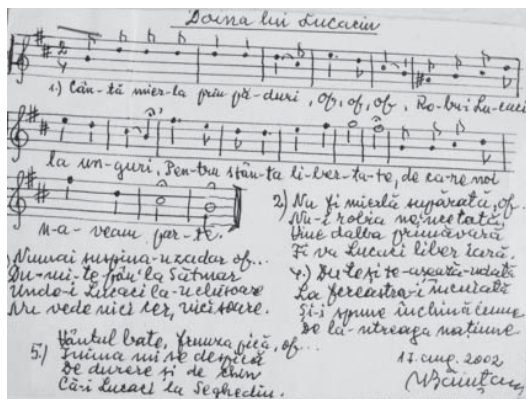 Doina lui Lucaciu
2/4
1.) Cân-tă mier-la prin pă-duri, of, of, of, Ro-bu-i Lu-caci
la un-guri, Pen-tru sfân-ta li-ber-ta-te, de ca-re noi
n-a-veam par-te.
2) Nu fi mierlă supărată, of...
Nu-i robia neîncetată
Vine dalba primăvară
Fi va Lucaci liber iară.
Numai suspină-n zadar of...
Du-mi-te pân' la Sătmar
Unde-i Lucaci la-nchisoare
Nu vede nici cer, nici soare.
4.) Du-te și te-așează-ndată
La fereastra-i încuiată
Și-i spune închinăciune
De la-ntreaga națiune
5.) Vântul bate, frunza pică, of...
Inima mi se despică
De durere și de chin
Că-i Lucaci la Seghedin.
17. aug. 2002